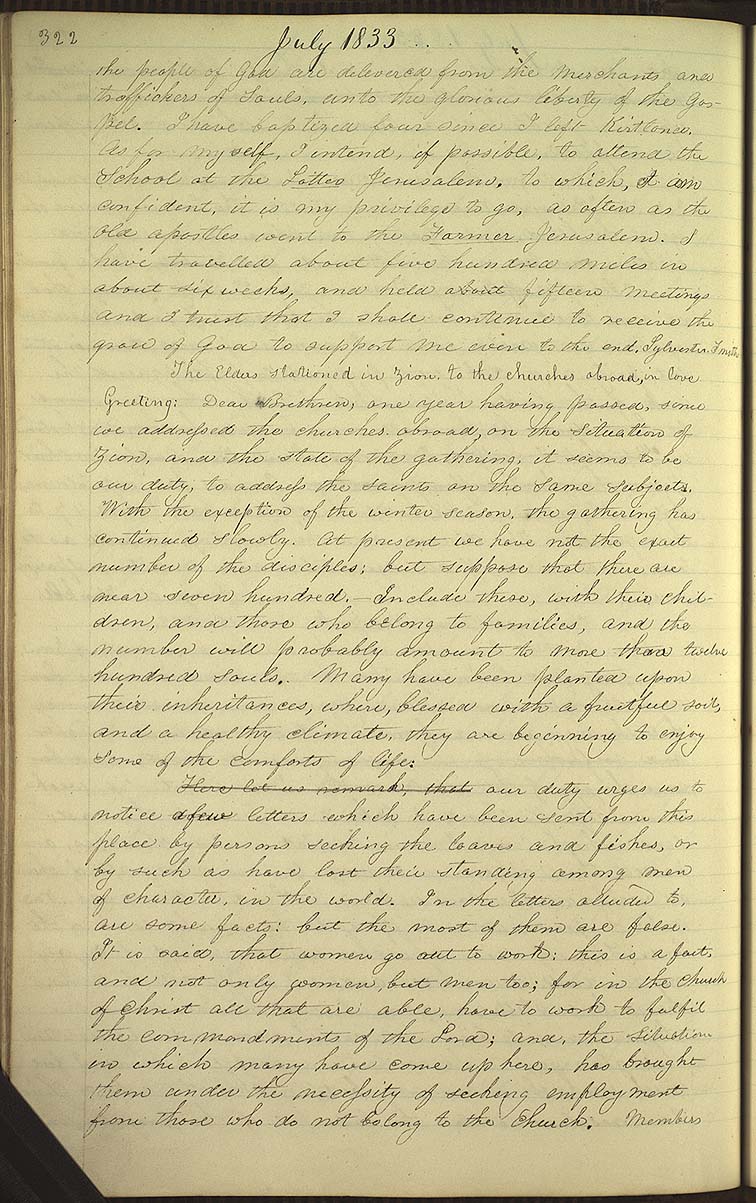 322
July 1833
the people of God are delivered from the merchants and
traffickers of souls, unto the glorious liberty of the Gos-
pel. I have baptized four since I left Kirtland.
As for myself, I intend, if possible, to attend the
School at the Latter Jerusalem, to which, I am
confident, it is my privilege to go, as often as the
old apostles went to the Former Jerusalem. I
have travelled about five hundred miles in
about six weeks, and held about fifteen meetings
and I trust that I shall continue to receive the
grace of God to support me even to the end. Sylvester Smith
The Elders stationed in Zion. to the churches abroad, in love
Greeting: Dear Brethren, one year having passed, since
we addressed the churches abroad, on the situation of
Zion, and the state of the gathering, it seems to be
our duty, to address the saints on the same subjects.
With the exception of the winter season, the gathering has
continued slowly. At present we have not the exact
number of the disciples; but suppose that there are
near seven hundred.— Include these, with their chil-
dren, and those who belong to families, and the
number will probably amount to more than twelve
hundred souls. Many have been planted upon
their inheritances, where, blessed with a fruitful soil,
and a healthy climate, they are beginning to enjoy
some of the comforts of life:
Here let us remark, that our duty urges us to
notice a few letters which have been sent from this
place by persons seeking the loaves and fishes, or
by such as have lost their standing among men
of character, in the world. In the letters alluded to,
are some facts: but the most of them are false.
It is said, that women go out to work: this is a fact,
and not only women, but men too; for in the church
of Christ all that are able, have to work to fulfil
the commandments of the Lord; and, the situation
in which many have come up here, has brought
them under the necessity of seeking employment
from those who do not belong to the church. Members